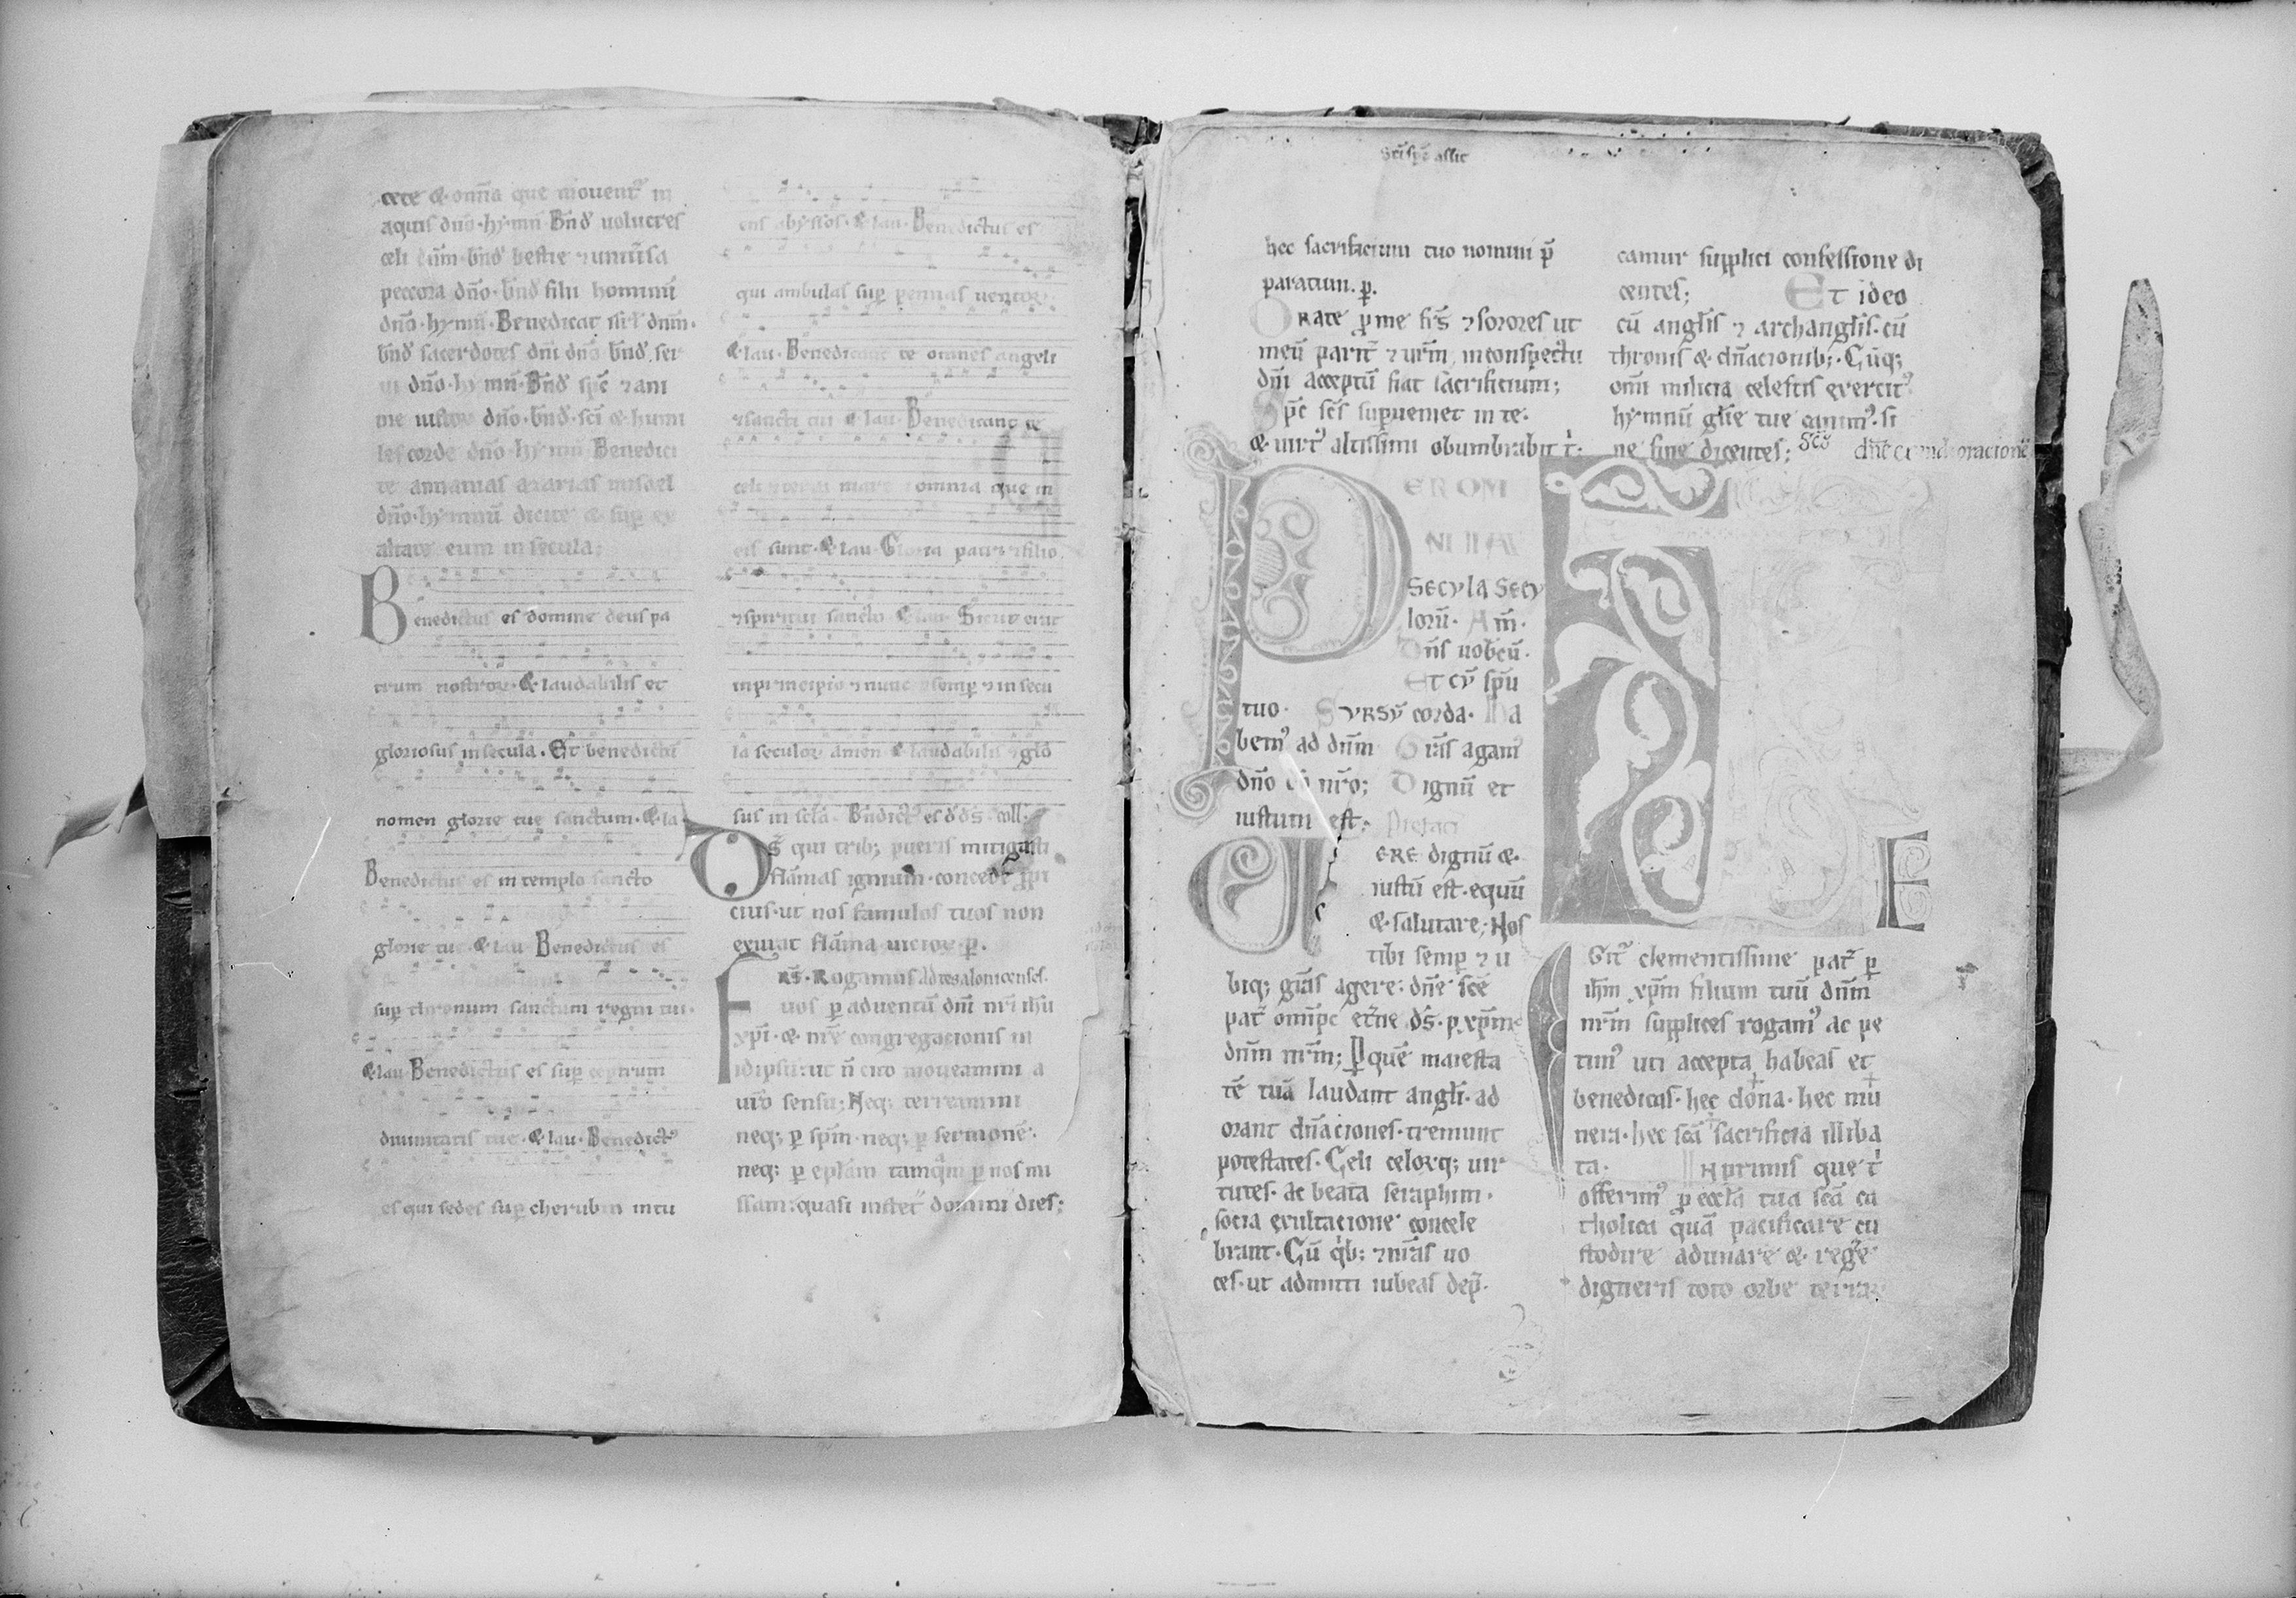 cete & om̄a que mouent᷒ in
aquis dn̄o·hymn̄ Bn̄d uolucres
celi dn̄m·bn̄d bestie ⁊ uniūsa
peccora dn̄o·bn̄d filii hominū
dn̄o·hymn̄·Benedicat isrl dn̄m·
bn̄d sacerdotes dn̄i dn̄o bn̄d ser
ui dn̄o·hymn̄·Bn̄d sp̄c ⁊ ani
me iustor dn̄o·bn̄d·sc̄i & humi
les corde dn̄o·hymn̄ Benedici
te annanias azarias misael
dn̄o·hymnū dicite & suꝑ ex
altate eum in secula;
Benedictus es domine deus pa
trum nostrorꝫ·& laudabilis et
gloriosus in secula·Et benedictū
nomen glorie tue sanctum·& la·
Benedictus es in templo sancto
glorie tue & lau Benedictus es
suꝑ thronum sanctum regni tui·
& lau Benedictus es suꝑ ceptrum
diuinitatis tue·& lau·Benedict᷒
es qui sedes suꝑ cherubin intu
ens abyssos·& lau·Benedictus es
qui ambulas suꝑ pennas uentorꝫ
& lau·Benedicant te omnes angeli
⁊ sancti tui & lau·Benedicant te
celi ⁊ terra mare ⁊ omnia que in
eis sunt·& lau·Gloria patri ⁊ filio
⁊ spiritui sancto & lau·Sicut erat
in principio ⁊ nunc ⁊ semꝑ ⁊ in secu
la seculorꝫ amen & laudabilis ⁊ glo
sus in scl̄a· Bn̄dict᷒ es d̄ d̄s· coll·
Ds̄ qui tribꝫ pueris mitigasti
flāmas ignium·concede ꝓpi
cius·ut nos famulos tuos non
exurat flāma uicior·ꝑ·
Frs̄·Rogamus ad tesalonicenses·
uos ꝑ aduentū dn̄i nr̄i ihū
xp̄i·& nr̄e congregacionis in
id ipsū:ut n̄ cito moueamini a
ur̄o sensu;Neqꝫ terreamini
neqꝫ ꝑ sp̄m·neqꝫ ꝑ sermonē·
neqꝫ ꝑ eplām tamqm̄ ꝑ nos mi
ssam:quasi instet domini dies;
sc̄i sp̄c assit
hec sacrificium tuo nomini p̄
paratum·ꝑ·
Orate ꝓ me frs̄ ⁊ sorores ut
meū parit̄ ⁊ ur̄m in conspectu
dn̄i acceptū fiat sacrificium;
Sp̄c sc̄s superueniet in te·
& uirt᷒ altissimi obumbrabit t̄·
PER OM
NIA
SECULA SECU
lorū· Am̄·
Dn̄s uobcū·
ET CŪ sp̄u
tuo· SURSŪ corda· Ha
bem᷒ ad dn̄m Grās agam᷒
dn̄o dō nr̄o; Dignū et
iustum est; Prefaci
ERE dignū &·
iustū est·equū
& salutare;Nos
tibi semꝑ ⁊ u
biqꝫ grās agere:dn̄e sc̄e
pat̄ omp̄c et̄ne ds̄·ꝑ xp̄m
dn̄m nr̄m; Ꝑ quē maiesta
tē tuā laudant angl̄i·ad
orant dn̄aciones·tremunt
potestates·Celi celorqꝫ uir
tutes·ac beata seraphim·
socia exultacione concele
brant·Cū qb̄ꝫ ⁊ nr̄as uo
ces·ut admitti iubeas dep̄·
camur supplici confessione di
centes; Et ideo
cū angl̄is ⁊ archangl̄is·cū
thronis & dn̄acionibꝫ·Cūqꝫ
om̄i milicia celestis exercit᷒
hymnū gl̄ie tue canim᷒·si
ne fine dicentes; Sc̄s dn̄e exaudi oracionē
TE
IGIT̄ clementissime pat̄ ꝑ
ihm̄ xp̄m filium tuū dn̄m
nr̄m supplices rogam᷒ ac pe
tim᷒ uti accepta habeas et
benedicas·hec dōna·hec mu
nera·hec sc̄a sacrificia illiba
ta· In primis que t̄
offerim᷒ ꝓ eccl̄a tua sc̄a ca
tholica quā pacificare cu
stodire adunare & reḡe
digneris toto orbe terrarꝫ